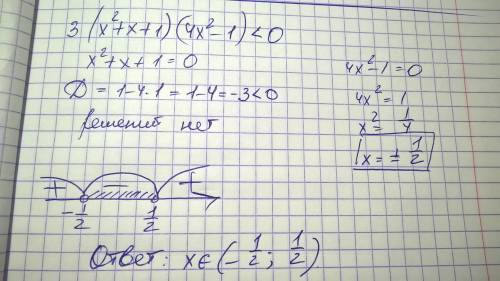 3(x²+x+1)(4x²-1)<0
x²+x+1=0
D=1-4·1=1-4=-3<0
решений нет
4x²-1=0
4x²=1
x²=1/4
x=±1/2
+ - +
-1/2 1/2
Ответ: x∈(-1/2; 1/2)